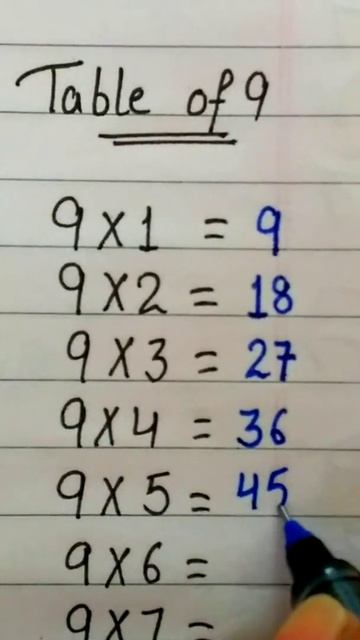 Table of 9
9 X 1 = 9
9 X 2 = 18
9 X 3 = 27
9 X 4 = 36
9 X 5 = 45
9 X 6 =
9 X 7 =